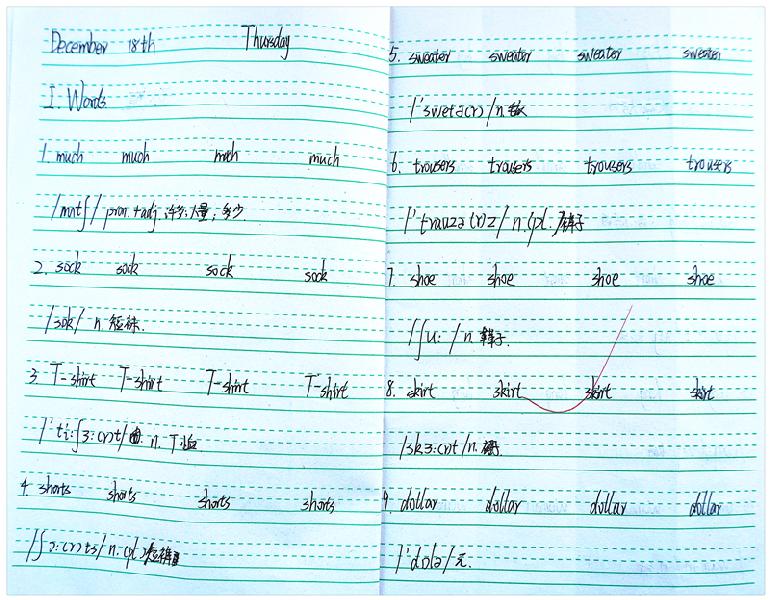 December 18th Thursday
I. Words
1. much much much much
/mʌtʃ/ pron.+adj. 许多;大量;多少.
2. sock sock sock sock
/sɒk/ n. 短袜.
3. T-shirt T-shirt T-shirt T-shirt
/'ti:ʃɜ:(r)t/ n. T恤
4. shorts shorts shorts shorts
/ʃɔ:(r)ts/ n. (pl.) 短裤
5. sweater sweater sweater sweater
/'swetə(r)/ n.
6. trousers trousers trousers trousers
/'trauzə(r)z/ n. (pl.) 裤子
7. shoe shoe shoe shoe
/ʃu:/ n. 鞋子.
8. skirt skirt skirt skirt
/sk3:(r)t/ n.
9. dollar dollar dollar dollar
/'dɒlə/ 元.